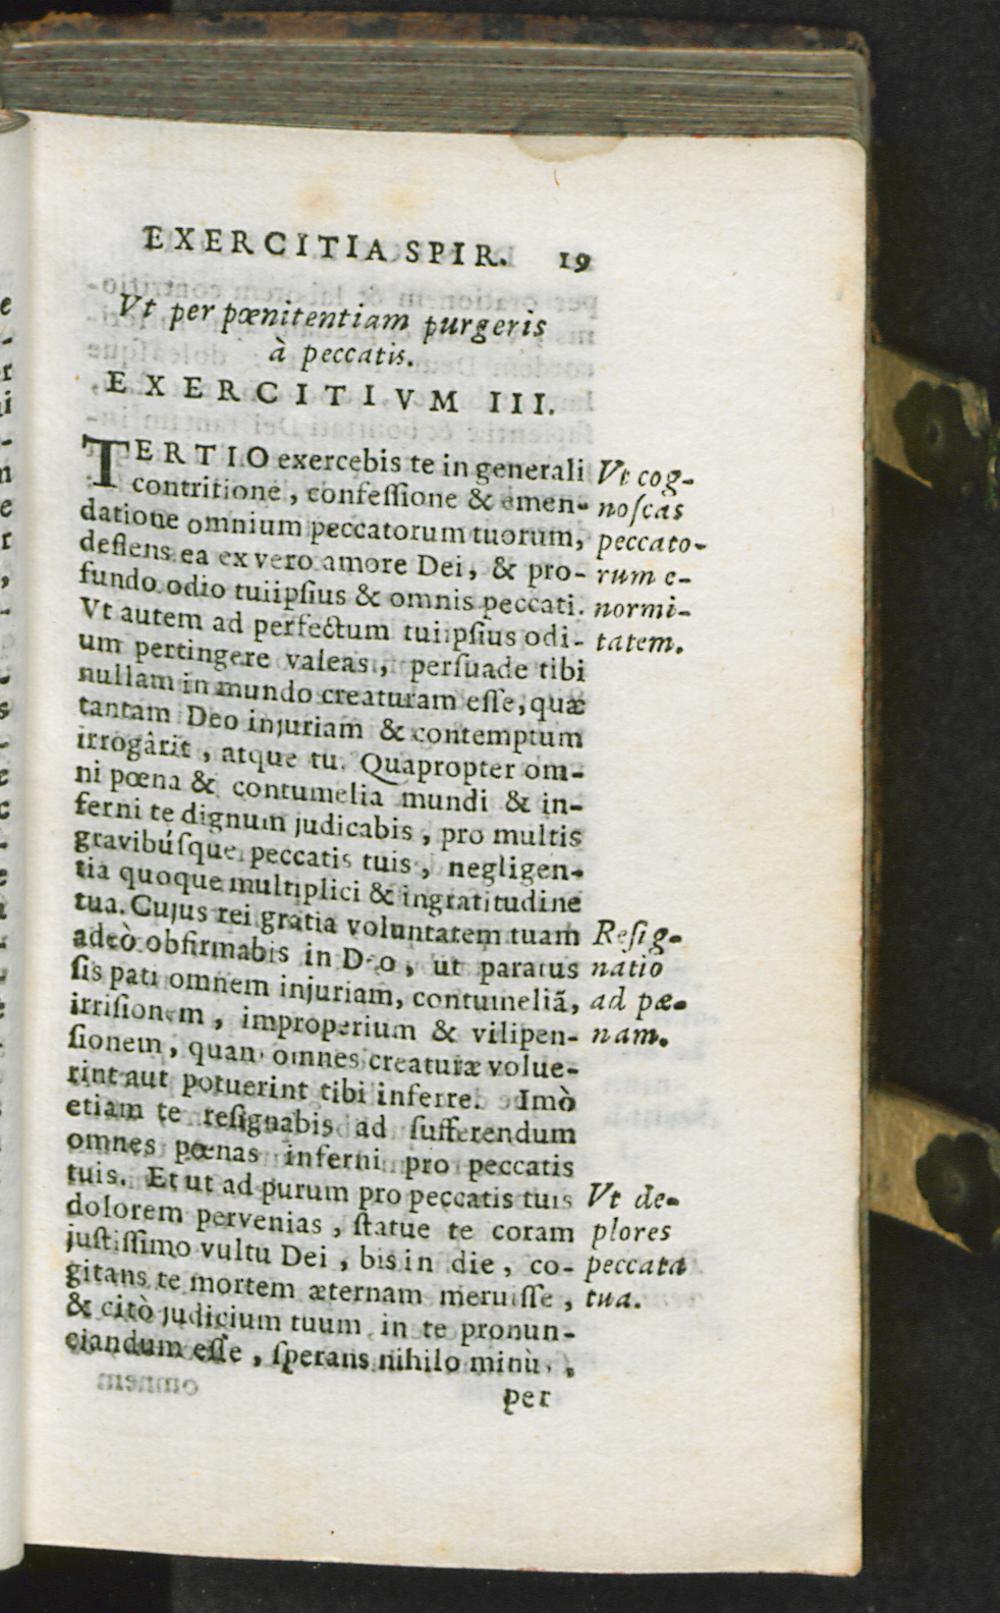 EXERCITIA SPIR. 19
Vt per pœnitentiam purgeris
à peccatis.
EXERCITIVM III.
TERTIO exercebis te in generali
contritione, confeſſione & emen-
datione omnium peccatorum tuorum,
deflens ea ex vero amore Dei, & pro-
fundo odio tuiipſius & omnis peccati.
Vt autem ad perfectum tuiipſius odi-
um pertingere valeas, perſuade tibi
nullam in mundo creaturam eſſe, quæ
tantam Deo injuriam & contemptum
irrogârit, atque tu. Quapropter om-
ni pœna & contumelia mundi & in-
ferni te dignum judicabis, pro multis
gravibúſque peccatis tuis, negligen-
tia quoque multiplici & ingratitudine
tua. Cujus rei gratia voluntatem tuam
adeò obfirmabis in Deo, ut paratus
ſis pati omnem injuriam, contumeliã,
irriſionem, improperium & vilipen-
ſionem, quam omnes creaturæ volue-
rint aut potuerint tibi inferre. Imò
etiam te reſignabis ad ſufferendum
omnes pœnas inferni pro peccatis
tuis. Et ut ad purum pro peccatis tuis
dolorem pervenias, ſtatue te coram
juſtiſſimo vultu Dei, bis in die, co-
gitans te mortem æternam meruiſſe,
& citò judicium tuum in te pronun-
ciandum eſſe, ſperans nihilo minùs,
per
Vt cog-
noſcas
peccato-
rum e-
normi-
tatem.
Reſig-
natio
ad pæ-
nam.
Vt de-
plores
peccata
tua.